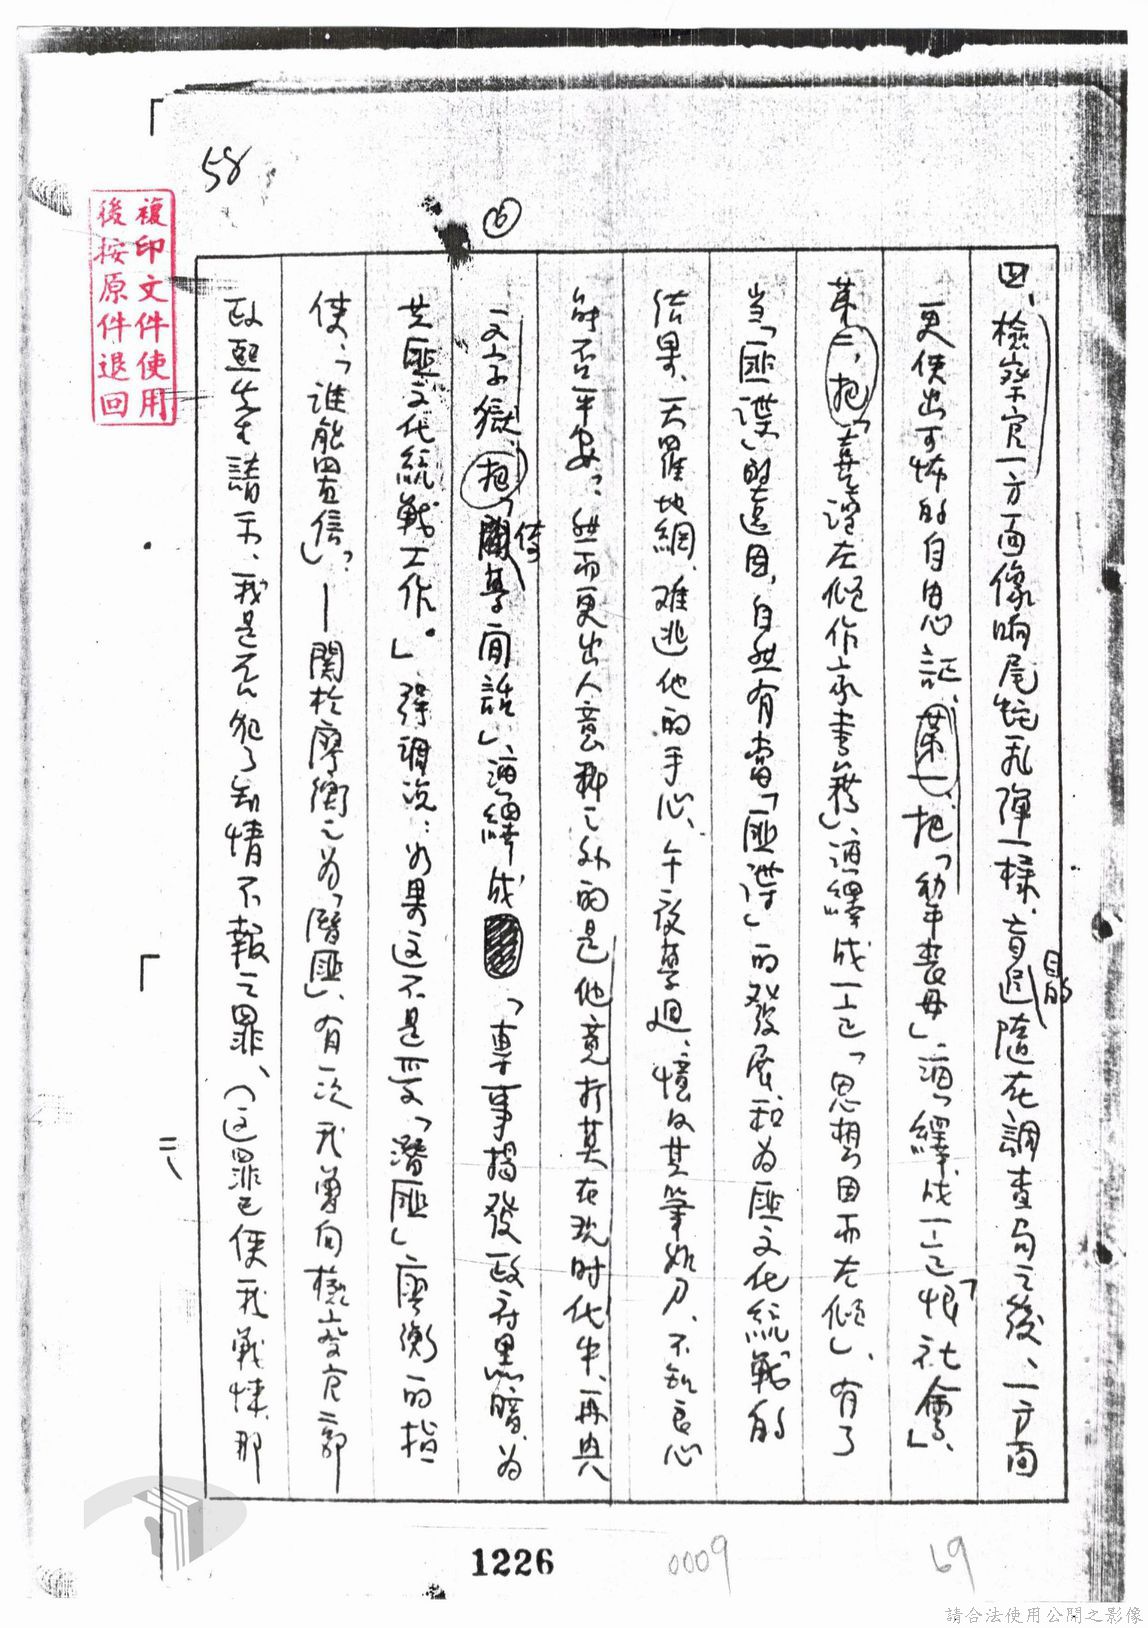 58
⑥
複印文件使用
後按原件退回
四、檢察官一方面像响尾蛇乱彈一樣、盲目的追隨在調查局之後、一方面
更使出可怖的自由心証、第一、把「幼年喪母」演繹成一己「恨社會」、
第二、把「喜讀左傾作家書籍」演繹成一己「思想因而左傾」、有了
当「匪諜」的遠因，自然有當「匪諜」的發展、和為匪文化統戰的
結果、天羅地網、难逃他的手心、午夜夢迴、憶及其筆如刀、不知良心
能否平安？、然而更出人意料之外的是他竟於其在現时代中、再興
文字獄、把「倚夢閒話」演繹成「專事揭發政府黑暗、為
共匪文化統戰工作。」、強調説：如果这不是受「潛匪」廖衡的指
使、「誰能置信」？—關於廖衡之為「潛匪」、有一次我曾向檢察官郭
政熙先生請示、我是否犯了知情不報之罪、（这罪已使我戰慄、那
二、
1226
0009
69
請合法使用公開之影像